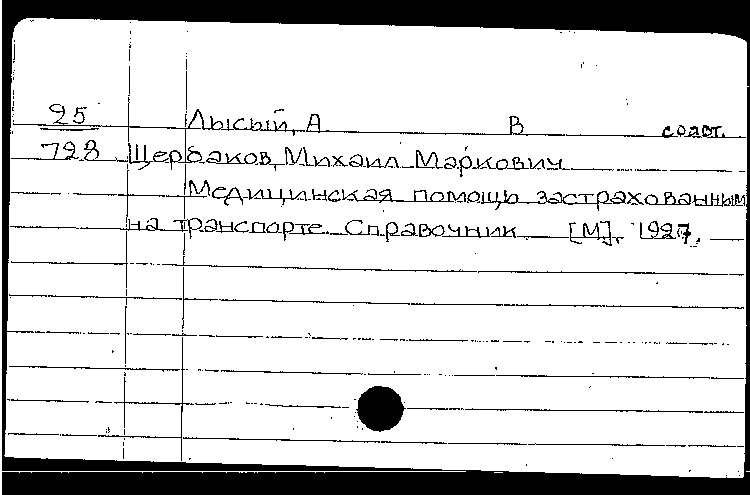 25 Лысый, А. В соавт.
728 Щербаков, Михаил Маркович
Медицинская помощь застрахованным
на транспорте. Справочник [М], 1927.